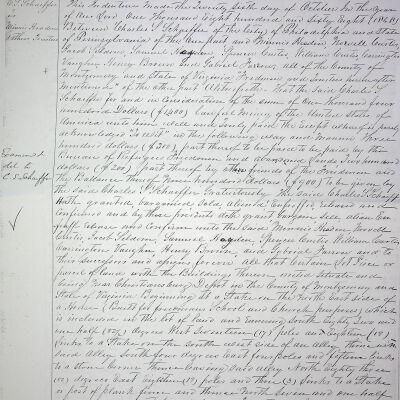 C. S. Schaeffer
to
Minnis Headen
& other Trustees
Examined
del. to
C S Schaeffer
This Indenture Made the Twenty Sixth day of October In the Year
of our Lord One Thousand Eight hundred and Sixty Eight (1868)
Between Charles S. Schaeffer of the City of Philadelphia and State
of Pennsylvania of the one part and Minnis Headen Norvell Curtis
Jacob Tilderon Samuel Hayden Spencer Curtis William Curtis Carrington
Vaughn Henry Brown and Gabriel Farrow all of the County of
Montgomery and State of Virginia Freedmen and Trustees hereinafter
mentioned of the other part Witnesseth That the said Charles S.
Schaeffer for and in Consideration of the sum of One thousand four
hundred Dollars ($1400) lawful Money of the United States of
America unto him well and truly paid the receipt whereof is hereby
acknowledged To Wit in the following order and manner Three
hundred dollars ($300) part thereof to be paid to be paid by the
Bureau of Refugees Freedmen and Abandoned Lands Two hundred
dollars ($200) part thereof by the friends of the Freedmen and
the Balance thereof Nine hundred dollars ($900) to be given by
the said Charles S. Schaeffer Gratuitously The said Charles S. Schaeff
Hath granted bargained Sold aliened Enfeoffed released and
confirmed and by these presents doth grant bargain sell alien En
feoff release and Confirm unto the said Minnis Headen Norvell
Curtis Jacob Tilderon Samuel Hayden Spencer Curtis William Curtis
Carrington Vaughn Henry Brown and Gabriel Farrow and to
their Successors and assigns forever all that Certain lot piece or
parcel of land with the Buildings thereon united situate and
being near Christiansburg Depot in the County of Montgomery and
State of Virginia Beginning at a Stake on the North East side of
a House (Built for freedmen School and Church purposes) which
is included in this lot of land and running South Eighty Two and
one half (82½) degrees West Seventeen (17) poles and eighteen (18)
links to a Stake on the South west side of an alley thence with
said alley South four degrees East four poles and fifteen links
to a Stone Corner thence leaving said alley North Eighty three
(83) degrees East Eighteen (18) poles and three (3) links to a Stake
or post of plank fence and thence North Seven and one half